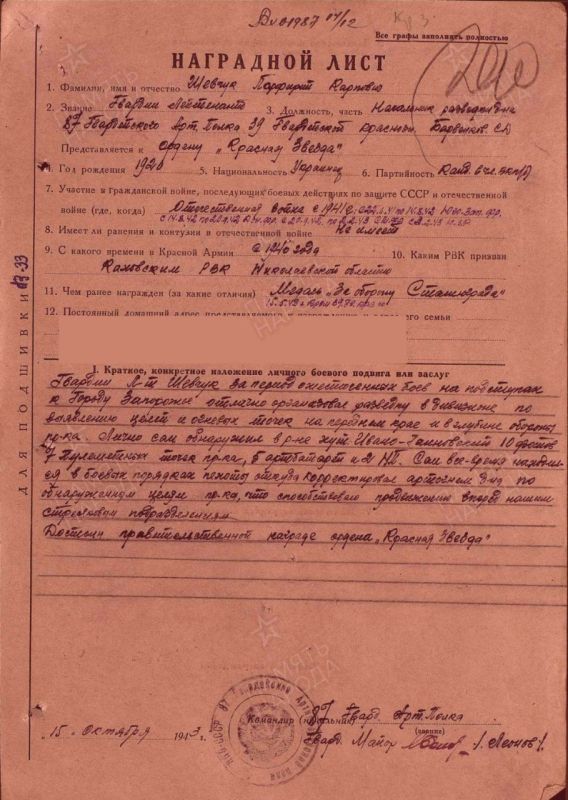 Все графы заполнять полностью
НАГРАДНОЙ ЛИСТ
1. Фамилия, имя и отчество Шевчук Порфирий Карпович
2. Звание Гвардии Лейтенант 3. Должность, часть Начальник разведки д-на
87 Гвардейского Арт. Полка 39 Гвардейской Краснозн. Барвенков. СД
Представляется к Ордену „Красная Звезда"
4. Год рождения 1920 5. Национальность Украинец 6. Партийность Канд. в чл. ВКП(б)
7. Участие в Гражданской войне, последующих боевых действиях по защите СССР и отечественной
войне (где, когда) Отечественная война с 1941 г.
8. Имеет ли ранения и контузии в отечественной войне Не имеет
9. С какого времени в Красной Армии с 1940 года 10. Каким РВК призван
РВК Николаевской области
11. Чем ранее награжден (за какие отличия) Медаль „За оборону Сталинграда"
12. Постоянный домашний адрес представляемого к награждению и адрес его семьи
I. Краткое, конкретное изложение личного боевого подвига или заслуг
Гвардии Л-т Шевчук за период ожесточенных боев на подступах
к городу Запорожье отлично организовал разведку в дивизионе по
выявлению целей и огневых точек на переднем крае и в глубине обороны
пр-ка. Лично сам обнаружил в р-не хут. 10 дзотов
7 пулеметных точек пр-ка, 5 артбатарей и 2 НП. Сам все время находил-
ся в боевых порядках пехоты откуда корректировал артогнем д-на по
обнаруженным целям пр-ка, что способствовало продвижению вперед нашим
стрелковым подразделениям.
Достоин правительственной награде ордена „Красная Звезда"
Командир (начальник) 87 Гвард. Арт. Полка
(звание)
15 Октября 1943 г. Гвард. Майор /Леонов/
ДЛЯ ПОДШИВКИ
ПАМЯТЬ НАРОДА